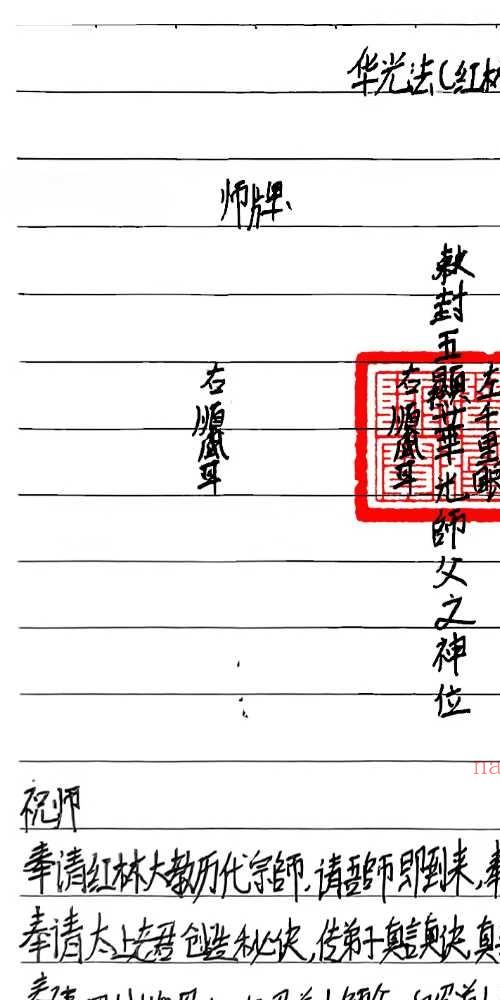 华光法(红林
师牌
敕封五顯華光師父之神位
左千里眼
右順風耳
右順風耳
na
祝师
奉请红林大教历代宗師,请吾師即到来,奉
奉请太上老君创造秘诀,传弟子真言真诀,真